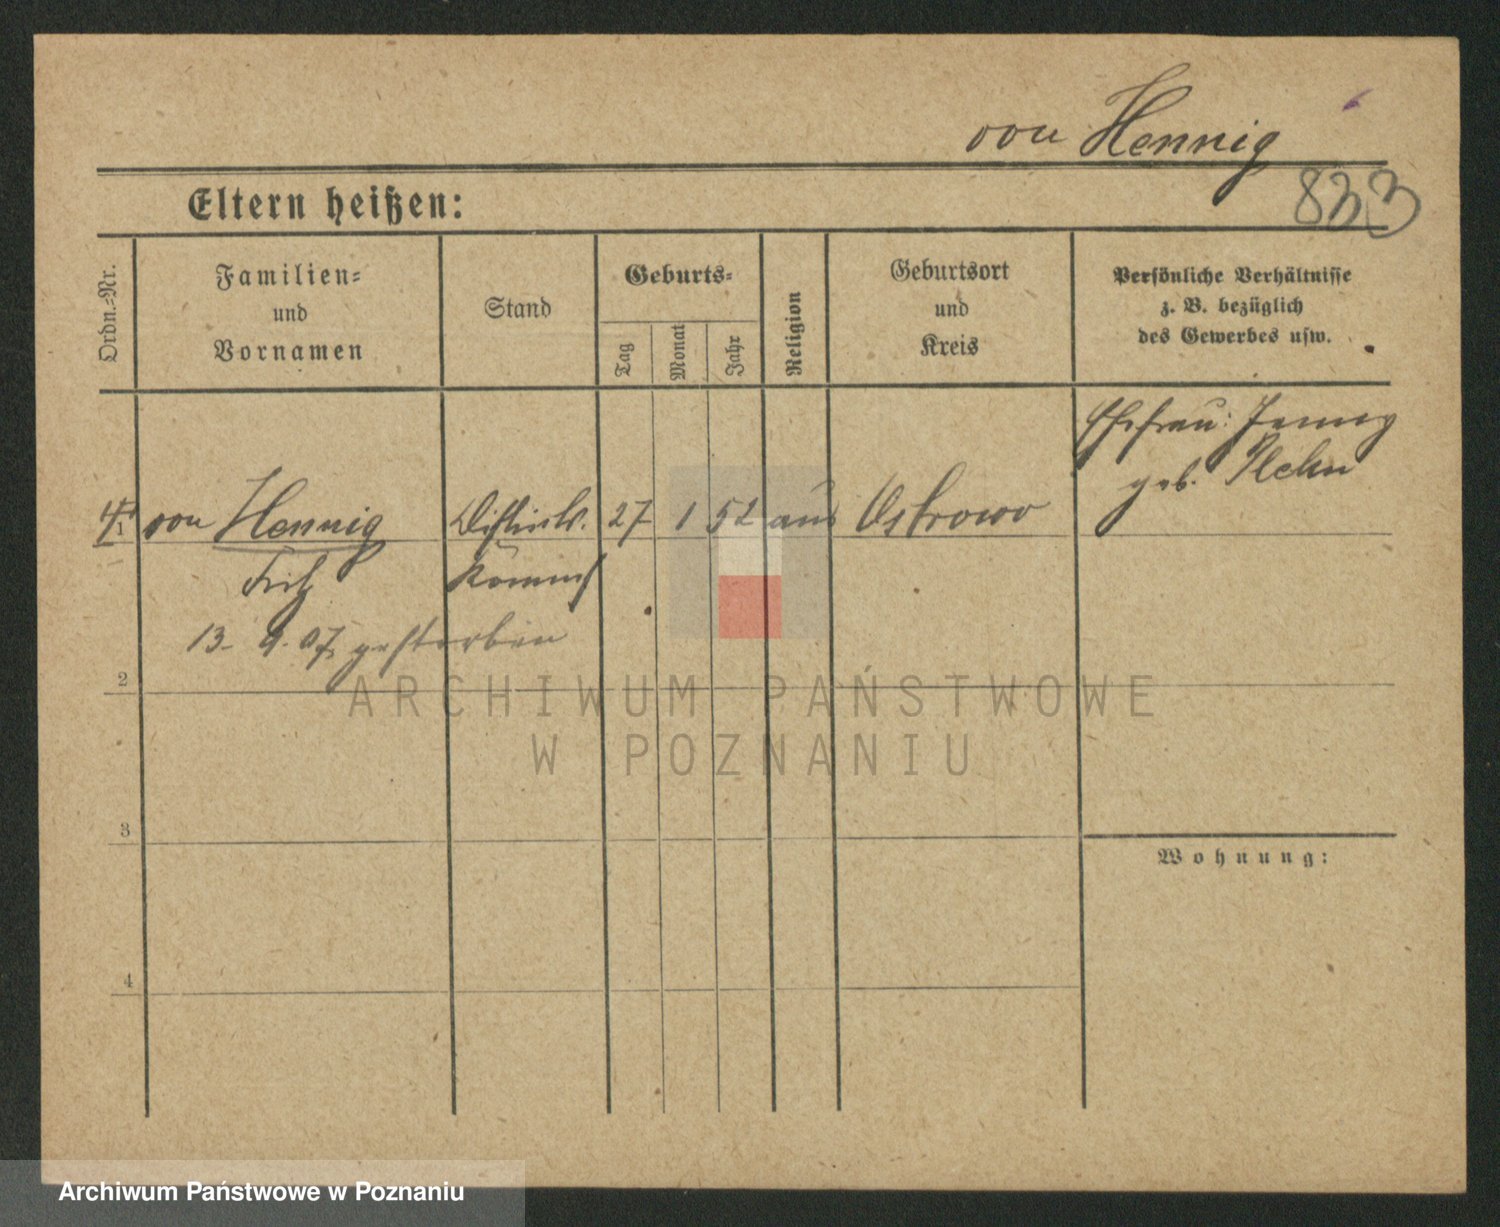 von Hennig
833
Eltern heißen:
Ordn.-Nr.
Familien-
und
Vornamen
Stand
Geburts-
Tag
Monat
Jahr
Religion
Geburtsort
und
Kreis
Persönliche Verhältnisse
z. B. bezüglich
des Gewerbes usw.
Ehefrau: Jenny
geb. Plehn
1 von Hennig Distrikts. 27 1 52 Ostrowo
Fritz Kommis
13. 9. 07 gestorben
2
ARCHIWUM PAŃSTWOWE
W POZNANIU
3
Wohnung:
4
Archiwum Państwowe w Poznaniu